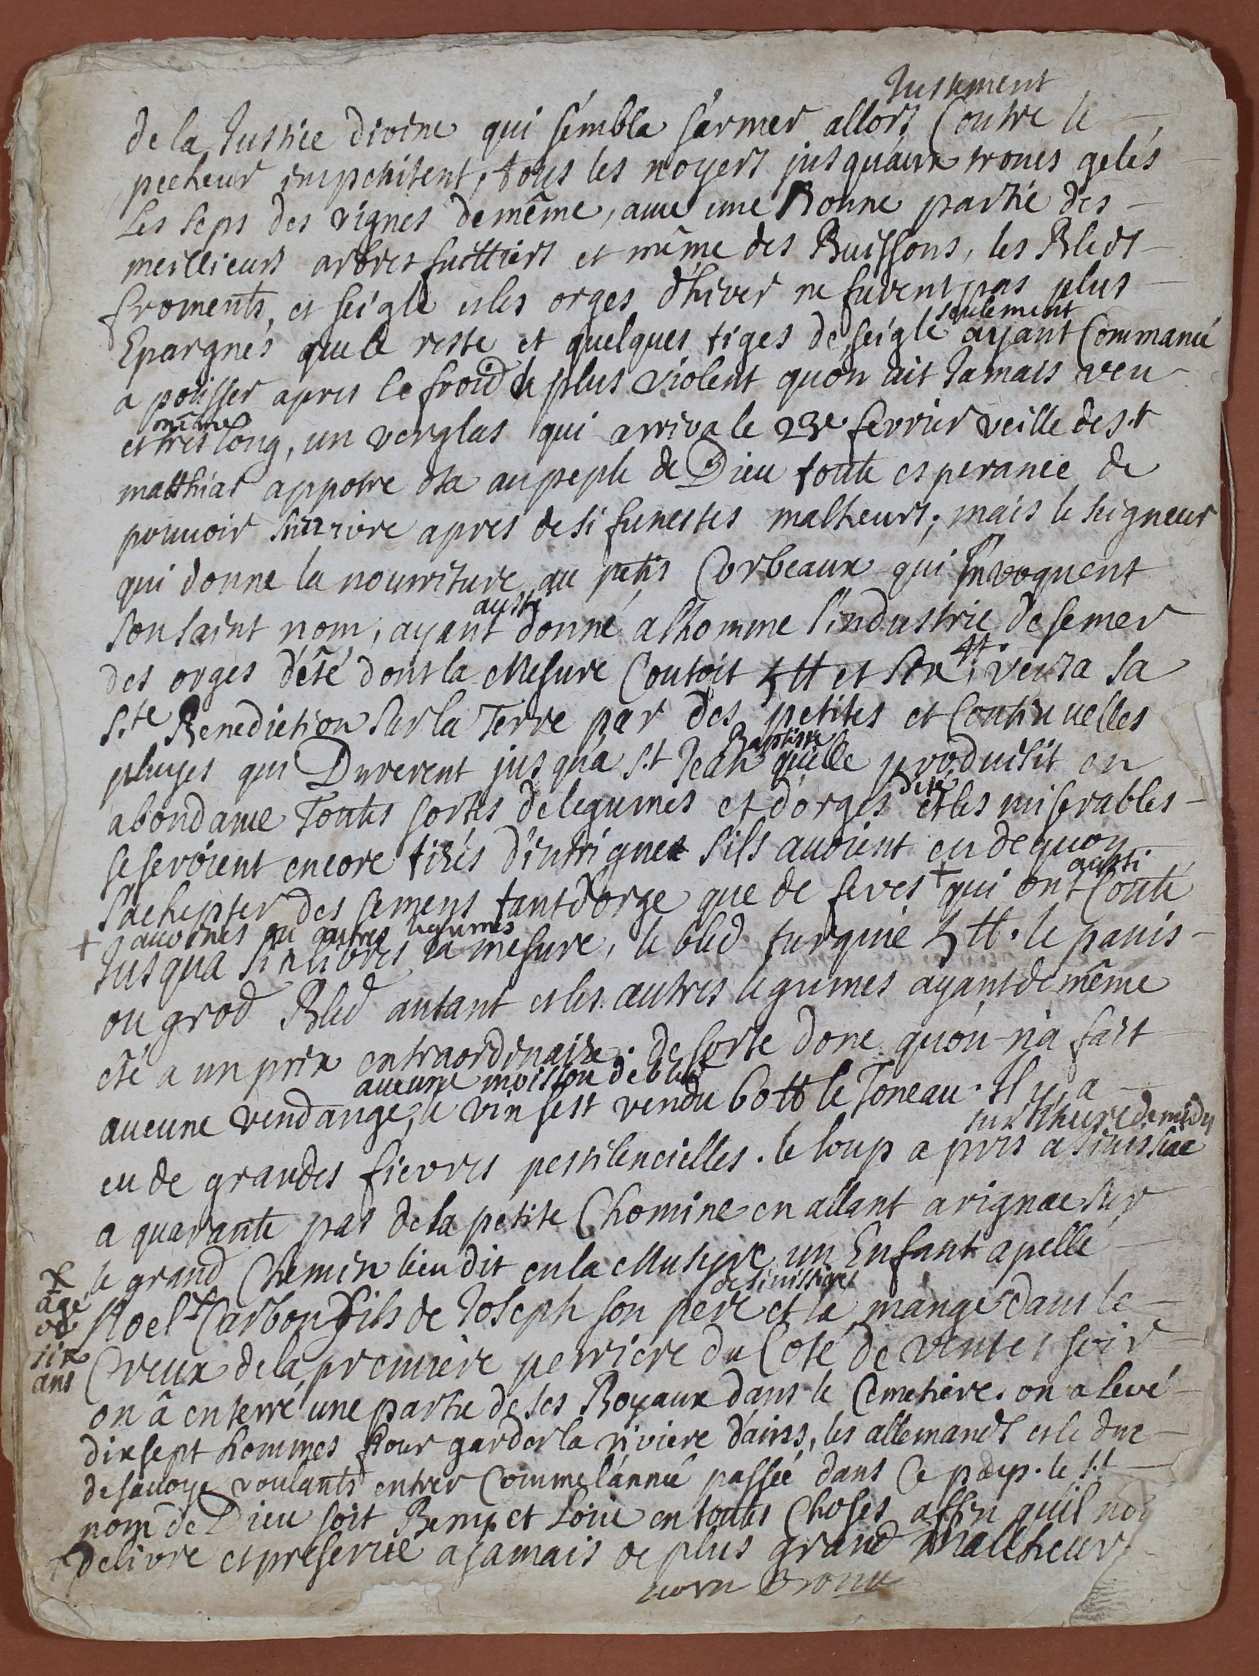 Justement
de la Justice divine qui sémble s'armer allors Contre le
pecheur impenitent, tous les noyers jusquaux troncs gelés
Les seps des vignes de même, avec une Bonne partie des
meillieurs arbres fruittiers et même des Buissons, les Bleds
froments, et seigle et les orges d'hiver ne furent pas plus
seulement
Epargnés que le reste et quelques tiges de seigle ayant Commancé
a poüsser apres le froid le plus violent quon ait Jamais veu
même
et tres long, un verglas qui arriva le 23e fevrier veille de st
matthias appotre ota au peple de Dieu toute esperance de
pouvoir survivre apres de si funestes malheurs; mais le seigneur
qui donne la nourriture au petits Corbeaux qui invoquent
aussi
son saint nom, ayant donné a lhomme l'industrie de semer
des orges d'été dont la Mesure Coutoit 5 tt et six tt. versa sa
ste Benediction sur la Terre par des petites et Continuelles
Baptiste
pluyes qui Durerent jusqu'a st Jean qu'elle produisit en
d'été
abondance Toutes sortes de legumes et d'orges et les miserables
se seroient encore tirés d'intrigues s'ils avoient eu de quoy
aussi
s'achepter des semens tant d'orge que de feves + qui ont Couté
+ avoines ou autres legumes
Jusqua six livres la mesure, le bled turquie 5 tt. le panis
ou gros Bled autant et les autres legumes ayant de même
été a un prix extraordinaire. de sorte donc quon n'a fait
aucune moisson de bled
aucune vendange, le vin s'est vendu 60 tt le Toneau. Il y a
sur l'heure de midy
eu de grandes fievres pestilencielles. le loup a pris a sinissiac
a quarante pas de la petite Chomine en allant a rignac sur
le grand Chemin lieu dit en la un Enfant apellé
de sinissiac
+ agé de six ans
Noel Carbon + fils de Joseph son pere et la mangé dans le
Creux de la premiere perriere du Coté de soir
on â enterré une partie de ses Boyaux dans le Cemetiere. on a levé
dixsept hommes pour garder la riviere d'ains, les allemands et le duc
de savoye voulants entrer Comme l'année passée dans ce pays. le st
nom de Dieu soit Beny et Loüé en toutes Choses affin quil nous
delivre et preserve a jamais de plus grand Malheur